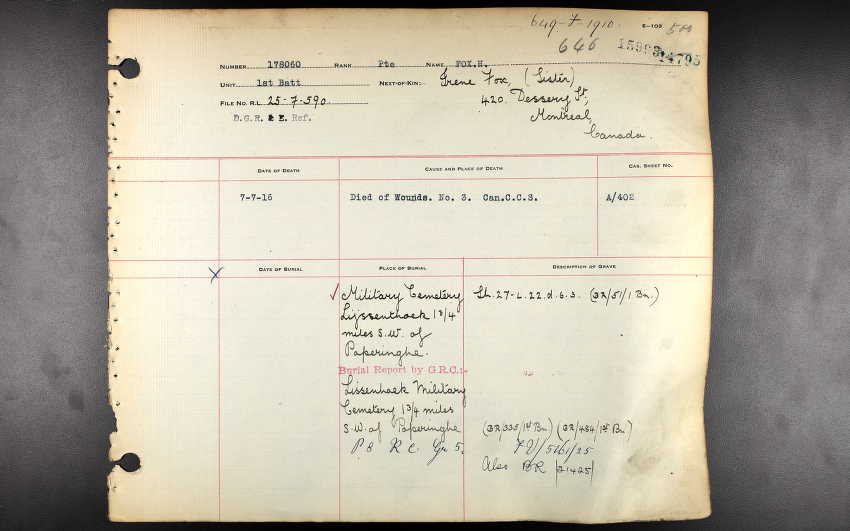 649-F-1910.
E-103
500
646
15993
14795
NUMBER 178060 RANK Pte NAME FOX.H.
UNIT 1st Batt NEXT-OF-KIN: Irene Fox, (Sister)
FILE NO. R.L. 25-7-590. 420. Dessery St,
D.G.R. & E. Ref. Montreal,
Canada.
DATE OF DEATH CAUSE AND PLACE OF DEATH CAS. SHEET NO.
7-7-16 Died of Wounds. No. 3. Can.C.C.S. A/402
X DATE OF BURIAL PLACE OF BURIAL DESCRIPTION OF GRAVE
Military Cemetery Sh.27-L.22.d.6.3. (BR/51/1 Bn.)
Lijssenthoek 1 3/4
miles S.W. of
Poperinghe.
Burial Report by G.R.C:-
Lissenhoek Military
Cemetery 1 3/4 miles
S.W. of Poperinghe (BR/335/1st Bn) (BR/484/1st Bn)
P 8 R C. Gr 5. /5161/25
Also BR /21425/